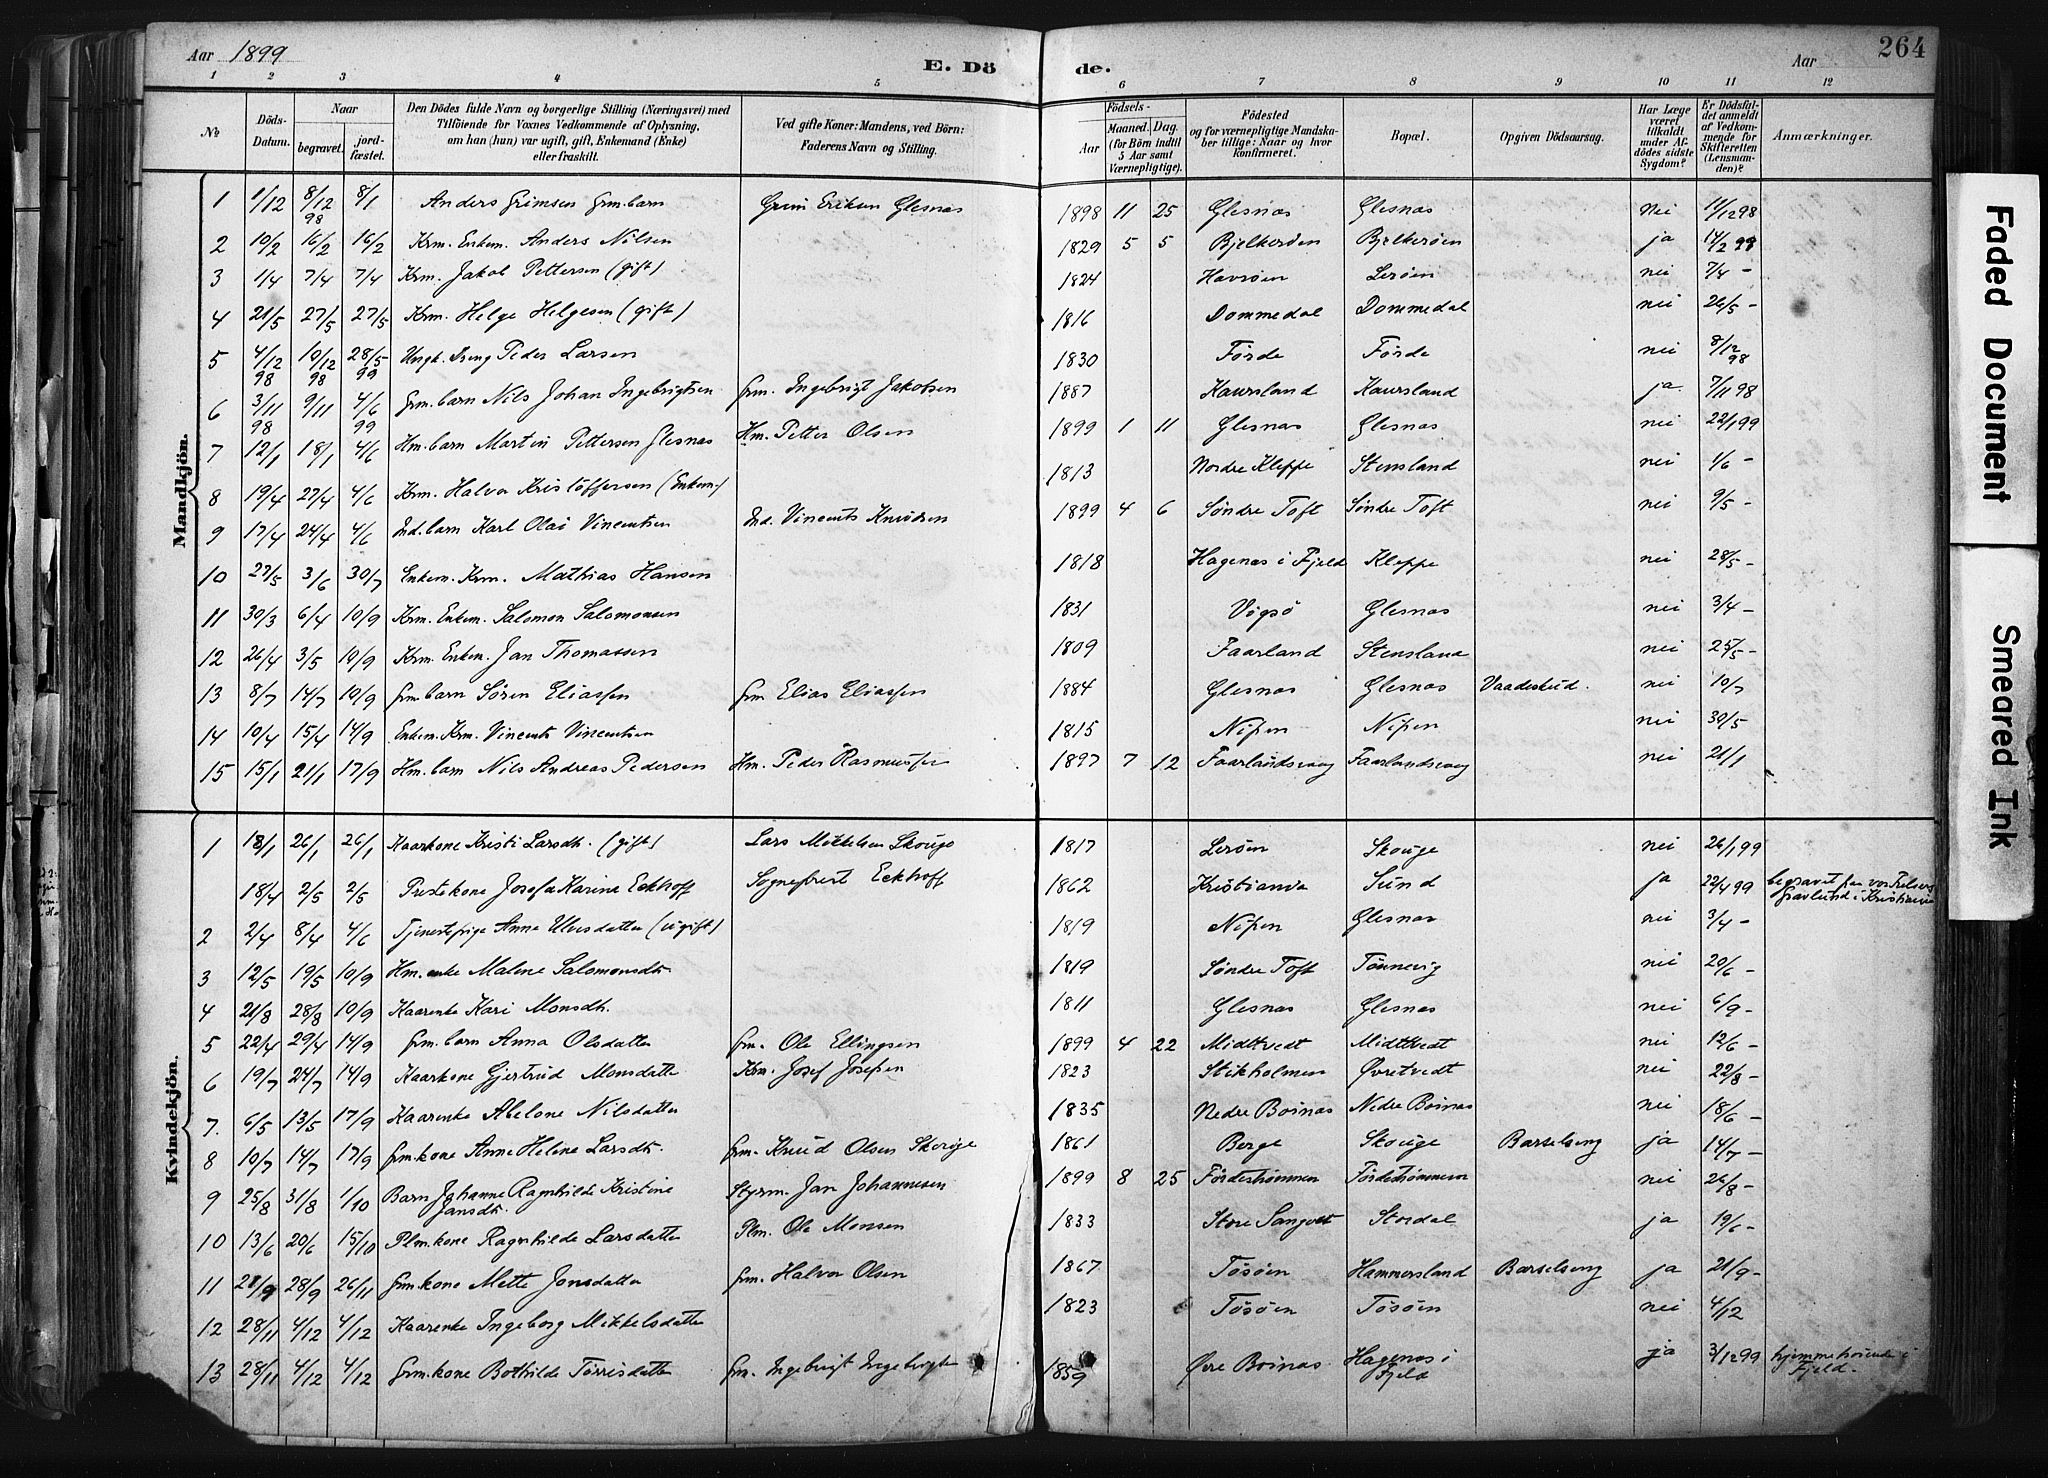 Aar 1899
E. Dö de.
Aar
264
1 2 3 4 5 6 7 8 9 10 11 12
No
Döds-Datum.
Naar
begravet. jordfæstet.
Den Dödes fulde Navn og borgerlige Stilling (Næringsvei) med
Tilföiende for Voxnes Vedkommende af Oplysning,
om han (hun) var ugift, gift, Enkemand (Enke)
eller fraskilt.
Ved gifte Koner: Mandens, ved Börn:
Faderens Navn og Stilling.
Födsels-
Aar
Maaned. Dag.
(for Börn indtil
5 Aar samt
Værnepligtige).
Födested
og for værnepligtige Mandska-
ber tillige: Naar og hvor
konfirmeret.
Bopæl.
Opgiven Dödsaarsag.
Har Læge
været
tilkaldt
under Af-
dödes sidste
Sygdom?
Er Dödsfal-
det anmeldt
af Vedkom-
mende for
Skifteretten
(Lensman-
den)?
Anmærkninger.
Mandkjön.
1 1/12 8/12 98 8/1 Anders Grimsen Grm. barn Grim Eriksen Glesnæs 1898 11 25 Glesnæs Glesnæs Nei 11/12 98
2 10/2 16/2 16/2 Krm. Enkem. Anders Nilsen 1829 5 5 Bjelkerøen Bjelkerøen ja 14/2 98
3 1/4 7/4 7/4 Krm. Jakob Pettersen (gift) 1824 Havrøen Lerøen nei 7/4 -
4 21/5 27/5 27/5 Krm. Helge Helgesen (gift) 1816 Dommedal Dommedal nei 26/5 -
5 4/12 98 10/12 98 28/5 99 Ungk. Dreng Peder Larsen 1830 Förde Förde nei 8/12 98
6 3/11 98 9/11 4/6 99 Grm. barn Nils Johan Ingebrigtsen Grm. Ingebrigt Jakobsen 1887 Kaursland Kaursland ja 7/11 98
7 12/1 18/1 4/6 Hm. barn Martin Pettersen Glesnæs Hm. Petter Olsen 1899 1 11 Glesnæs Glesnæs nei 22/1 99
8 19/4 27/4 4/6 Krm. Halvor Kristoffersen (Enkem.) 1813 Nordre Kleppe Stensland nei 1/6 -
9 17/4 24/4 4/6 Ind. barn Karl Olai Vincentsen Ind. Vincents Knudsen 1899 4 6 Søndre Toft Søndre Toft nei 9/5 -
10 27/5 3/6 30/7 Enkem. Krm. Mathias Hansen 1818 Hagenæs i Fjeld Kleppe nei 28/5 -
11 30/3 6/4 10/9 Krm. Enkem. Salomon Salomonsen 1831 Vigsö Glesnæs nei 3/4 -
12 26/4 3/5 10/9 Krm. Enkem. Jan Thomassen 1809 Faarland Stensland nei 25/5 -
13 8/7 14/7 10/9 Grm. barn Sören Eliassen Grm. Elias Eliassen 1884 Glesnæs Glesnæs Vaadeskud. nei 10/7
14 10/4 15/4 14/9 Enkem. Krm. Vincents Vincentsen 1815 Nipen Nipen nei 30/5
15 15/1 21/1 17/9 Hm. barn Nils Andreas Pedersen Hm. Peder Rasmussen 1897 7 12 Faarlandsvaag Faarlandsvaag nei 21/1
Kvindekjön.
1 18/1 26/1 26/1 Kaarkone Kristi Larsdtr. (gift) Lars Mikkelsen Skouge 1817 Lerøen Skouge nei 26/1 99
18/4 2/5 2/5 Prestekone Josefa Karine Eckhoff Sogneprest Eckhoff 1862 Kristiania Sund ja 22/4 99 begravet paa vor Frelsers Gravlund i Kristiania
2 2/4 8/4 4/6 Tjenestepige Anna Ulvsdatter (ugift) 1819 Nipen Glesnæs nei 3/4 -
3 12/5 19/5 10/9 Hm. enke Malene Salomonsdtr. 1819 Søndre Toft Tønnevig nei 20/6 -
4 21/8 28/8 10/9 Kaarenke Kari Monsdtr. 1811 Glesnæs Glesnæs nei 6/9 -
5 22/4 29/4 14/9 Grm. barn Anna Olsdatter Grm. Ole Ellingsen 1899 4 22 Midttvedt Midttvedt nei 12/6 -
6 19/7 24/7 14/9 Kaarkone Gjertrud Monsdatter Krm. Josef Josefsen 1823 Stikholmen Øvretvedt nei 22/8 -
7. 6/5 13/5 17/9 Kaarenke Abelone Nilsdatter 1835 Nedre Boinæs Nedre Boinæs nei 18/6 -
8 10/7 14/7 17/9 Grm. kone Anne Helene Larsdtr. Grm. Knud Olsen Skouge 1861 Berge Skouge Barselseng ja 14/7 -
9 25/8 31/8 1/10 Barn Johanne Ragnhilde Kristine Jansdtr. Styrm. Jan Johannesen 1899 8 25 Fördeströmmen Fördeströmmen nei 26/8 -
10 13/6 20/6 15/10 Plm. kone Ragnhilde Larsdatter Plm. Ole Monsen 1833 Store Sangolt Stordal ja 19/6 -
11 21/9 28/9 26/11 Grm. kone Mette Jonsdatter Grm. Halvor Olsen 1867 Tösöen Hammersland Barselseng ja 21/9 -
12 28/11 4/12 4/12 Kaarenke Ingeborg Mikkelsdatter 1823 Tösöen Tösöen nei 4/12
13 28/11 4/12 4/12 Grm. kone Bothilde Torrisdatter Grm. Ingebrigt Ingebrigtsen 1859 Øvre Boinæs Hagenæs i Fjeld ja 3/12 99 hjemmehørende i Fjeld.
Faded Document
Smeared Ink